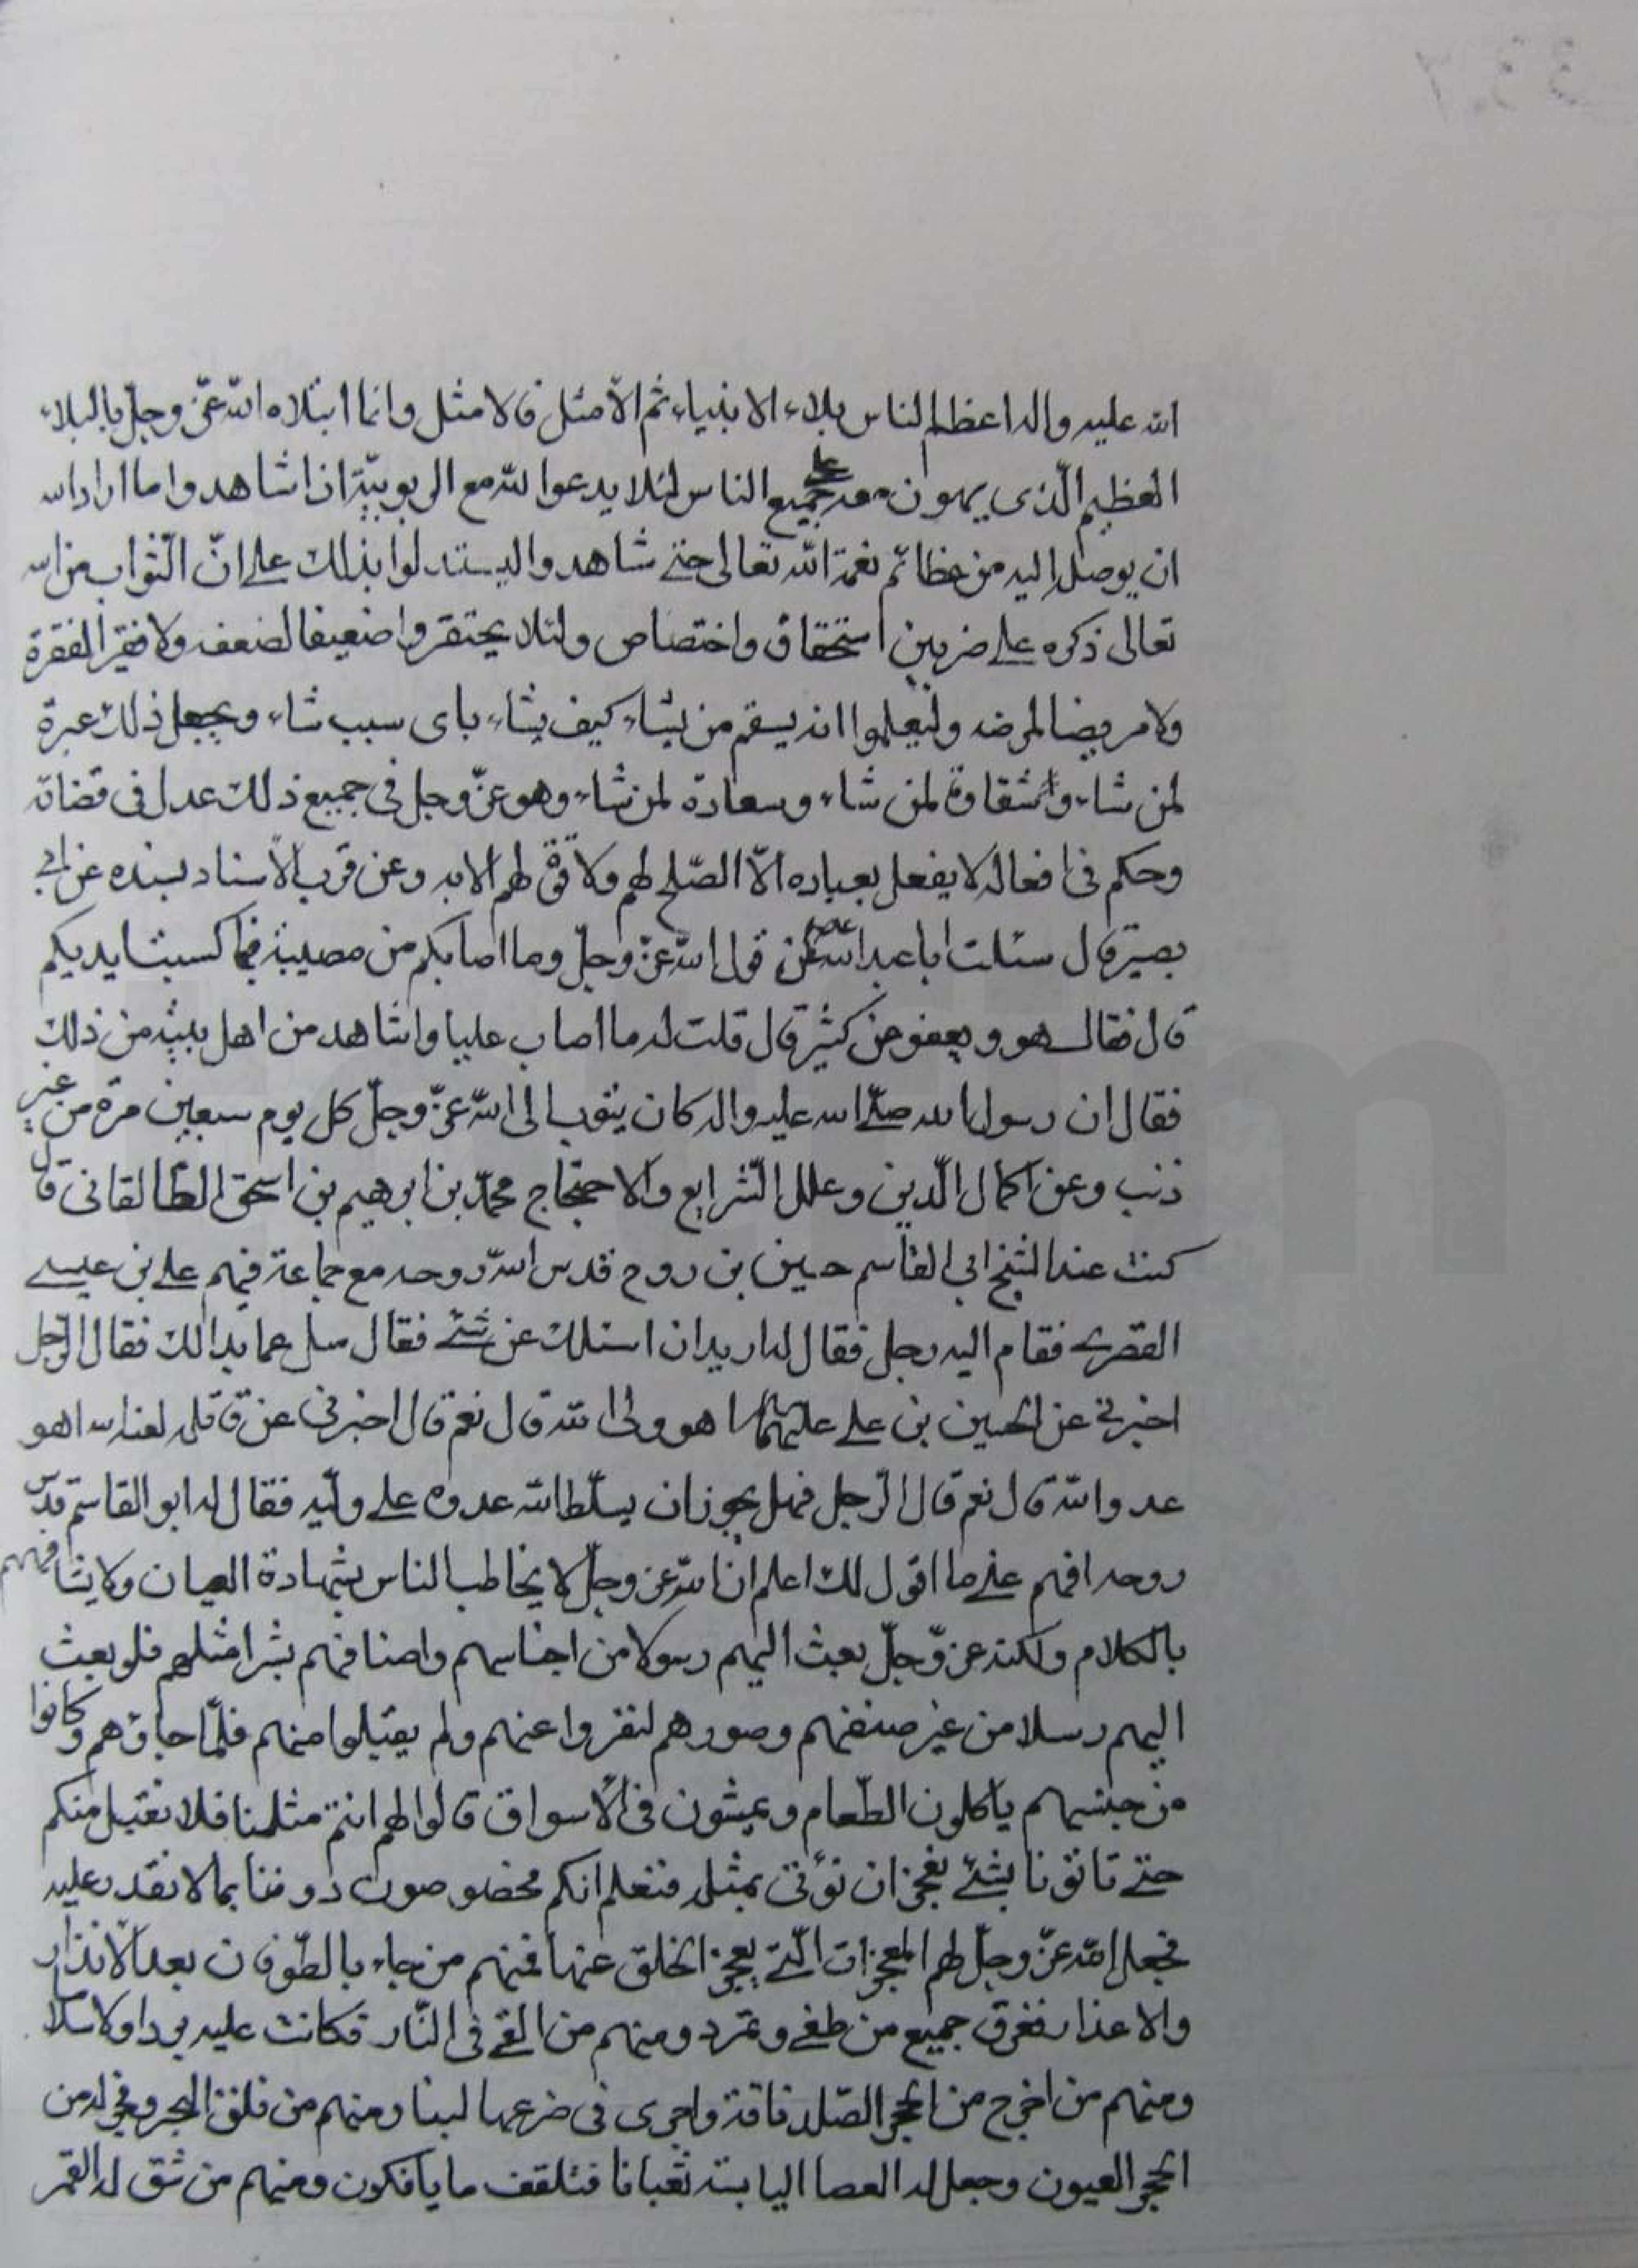 الله عليه واله اعظم الناس بلاء الانبياء ثم الأمثل فالامثل وانما ابتلاه الله عزّ وجلّ بالبلاء
العظيم الّذى يهون معه على جميع الناس لئلا يدعوا لله مع الربوبيّة اذا شاهدوا ما اراد الله
ان يوصل اليه من عظائم نعمة الله تعالى حتى شاهدوا ليستدلوا بذلك على انّ الثّواب من الله
تعالى ذكره على ضربين استحقاق واختصاص ولئلا يحتقروا ضعيفا لضعفه ولا فقيرا لفقره
ولا مريضا لمرضه وليعلموا انه يسقم من يشاء كيف يشاء باى سبب شاء ويجعل ذلك عبرة
لمن شاء وشقاوة لمن شاء وسعادة لمن شاء وهو عزّ وجل فى جميع ذلك عدل فى قضائه
وحكم فى افعاله لا يفعل بعباده الّا الصّلح لهم ولا قوّة لهم الا به وعن قرب الأسناد بسنده عن ابى
بصير قال سئلت ابا عبد الله ع عن قول الله عزّ وجلّ وما اصابكم من مصيبة فبما كسبت ايديكم
قال فقال هو ويعفو عن كثير قال قلت له ما اصاب عليا واشاهه من اهل بيته من ذلك
فقال ان رسول الله صلّى الله عليه واله كان يتوب الى الله عزّ وجلّ كل يوم سبعين مرة من غير
ذنب وعن اكمال الّدين وعلل الشّرايع والاحتجاج محمّد بن ابرهيم بن اسحق الطالقانى قال
كنت عند الشيخ ابى القاسم حسين بن روح قدس الله روحه مع جماعة فيهم على بن عيسى
القصرى فقام اليه رجل فقال له اريد ان اسئلك عن شئ فقال سل عما بدا لك فقال الرّجل
اخبرنى عن الحسين بن على عليهما هو ولى الله قال نعم قال اخبرنى عن قاتله لعنه الله اهو
عدو الله قال نعم قال الرّجل فهل يجوز ان يسلّط الله عدوه على وليّه فقال له ابو القاسم قدس
روحه افهم عنى ما اقول لك اعلم ان الله عز وجلّ لا يخاطب الناس بشهادة العيان ولا يشافههم
بالكلام ولكنه عز وجلّ بعث اليهم رسولا من اجناسهم واصنافهم بشرا مثلهم فلو بعث
اليهم رسلا من غير صنفهم وصورهم لنفروا عنهم ولم يقبلوا منهم فلمّا جاؤهم وكانوا
من جنسهم ياكلون الطّعام ويمشون فى الأسواق قالوا لهم انتم مثلنا فلا نقبل منكم
حتى تاتونا بشئ نعجز ان نؤتى بمثله فنعلم انكم مخصوصون دوننا بما لا نقدر عليه
فجعل الله عزّ وجلّ لهم المعجزات الّتى يعجز الخلق عنها فمنهم من جاء بالطّوفان بعد الأنذار
والاعذار فغرق جميع من طغى وتمرد ومنهم من القى فى النّار فكانت عليه بردا وسلاما
ومنهم من اخرج من الحجر الصّلد ناقة واجرى فى ضرعها لبنا ومنهم من فلق البحر وفجر له من
الحجر العيون وجعل له العصا اليابسة ثعبانا فتلقف ما يافكون ومنهم من شق له القمر